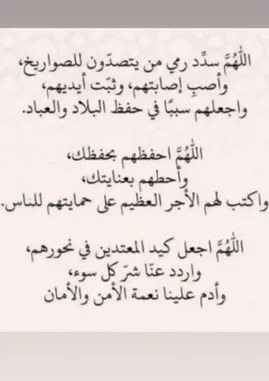 اللهُمَّ سدِّد رمي من يتصدّون للصواريخ،
وأصبِ إصابتهم، وثبّت أيديهم،
واجعلهم سببًا في حفظ البلاد والعباد.
اللهُمَّ احفظهم بحفظك،
وأحطهم بعنايتك،
واكتب لهم الأجر العظيم على حمايتهم للناس.
اللهُمَّ اجعل كيد المعتدين في نحورهم،
واردد عنّا شرّ كل سوء،
وأدم علينا نعمة الأمن والأمان